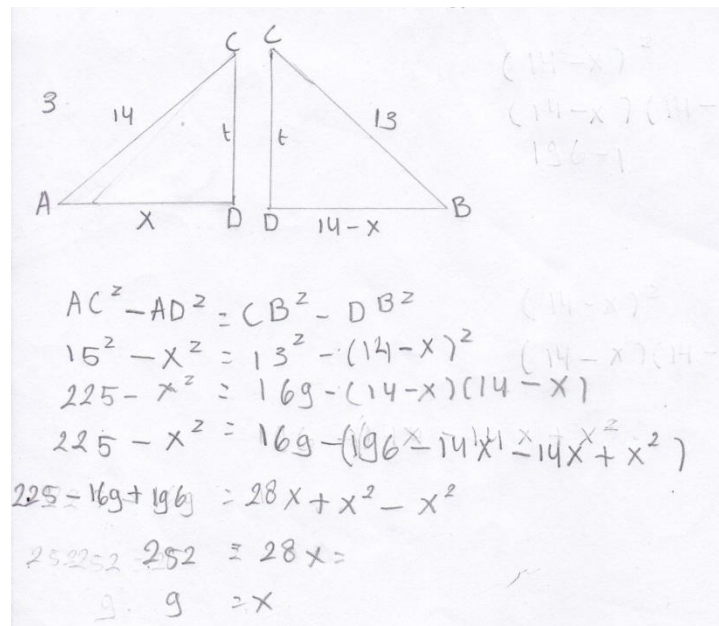 C C
3 14 t t 13
A x D D 14-x B
AC² - AD² = CB² - DB²
15² - x² = 13² - (14-x)²
225 - x² = 169 - (14-x)(14-x)
225 - x² = 169 - (196 - 14x - 14x + x²)
225 - 169 + 196 = 28x + x² - x²
252 = 28x =
9 = x